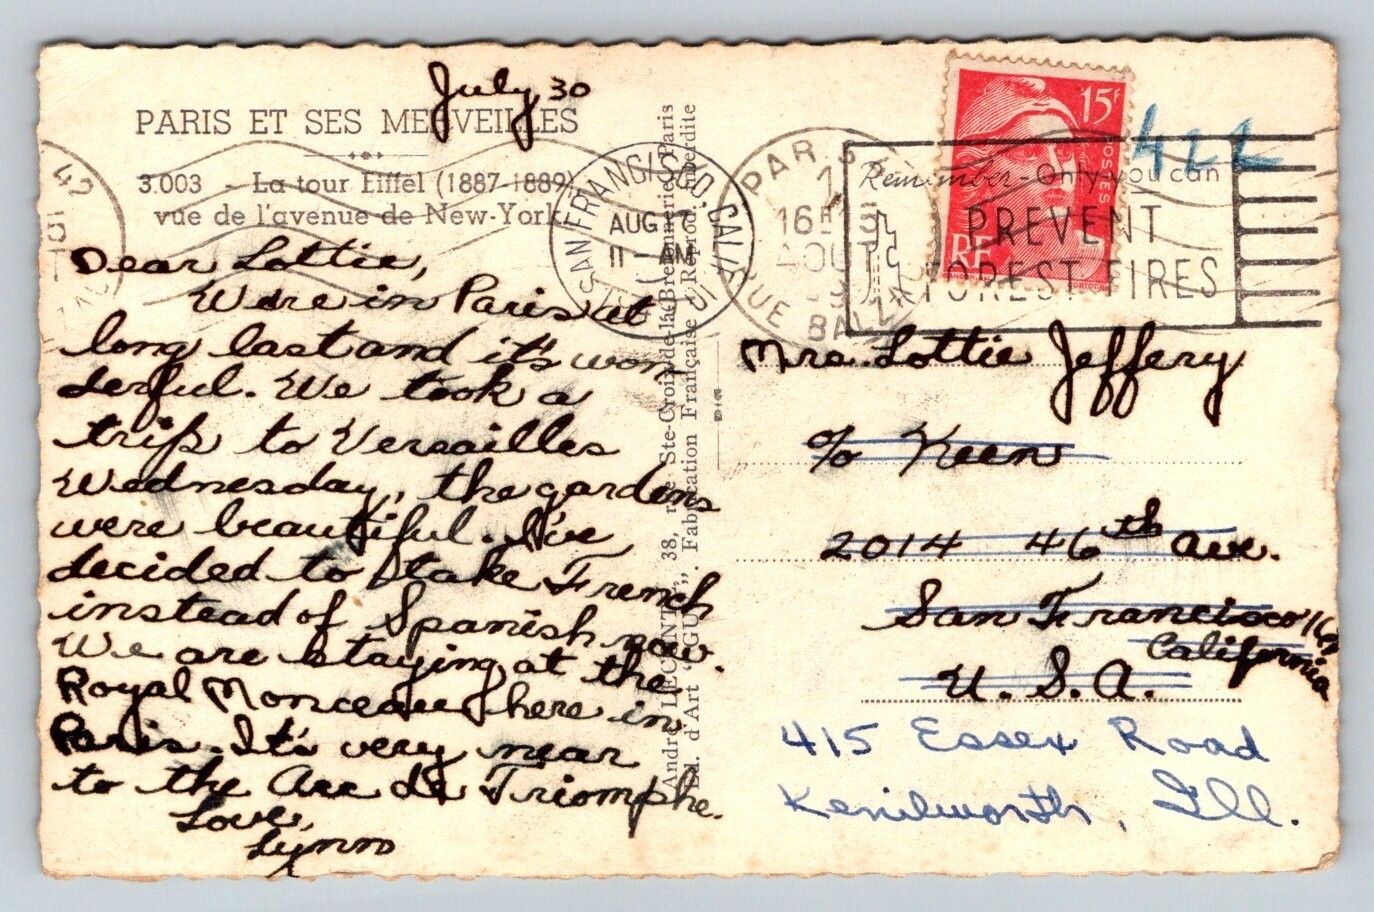 July 30
PARIS ET SES MERVEILLES
3.003 - La tour Eiffel (1887-1889)
vue de l'avenue de New-York
Dear Lottie,
We're in Paris at
long last and it's won
derful. We took a
trip to Versailles
Wednesday, the gardens
were beautiful. I've
decided to take French
instead of Spanish now.
We are staying at the
Royal Monceau here in
Paris. It's very near
to the Arc de Triomphe.
Love,
Lynn
André LECONTE, 38, rue Ste-Croix-de-la-Bretonnerie, Paris
Ed. d'Art "GUY". Fabrication Française - Reprod. interdite
SAN FRANCISCO, CALIF.
AUG 7
11 - AM
PARIS
16H15
AOUT
RUE BALZAC
Remember - Only you can
PREVENT
FOREST FIRES
15F
POSTES
RF
422
Mrs. Lottie Jeffery
c/o Keen
2014 46th Ave.
San Francisco 16
California
U.S.A.
415 Essex Road
Kenilworth, Ill.